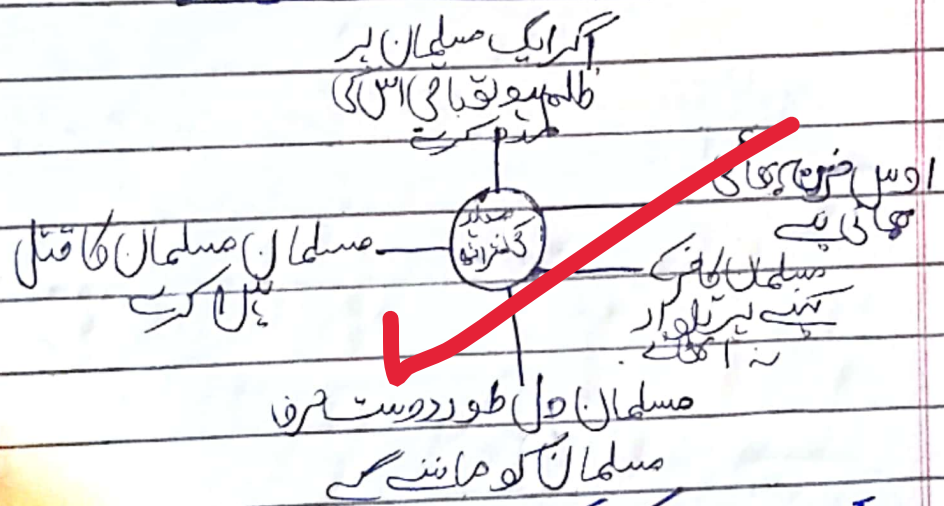 اگر ایک مسلمان پر
ظلم ہو تو باقی اس کی
مدد کرے
اوس خزرج بھائی
بھائی ہے
مسلمان مسلمان کا قتل
کرے
مسلمان کافر کے
کہنے پر تلوار
نہ اٹھائے
مسلمان دلی طور دوست صرف
مسلمان کو مانے گے